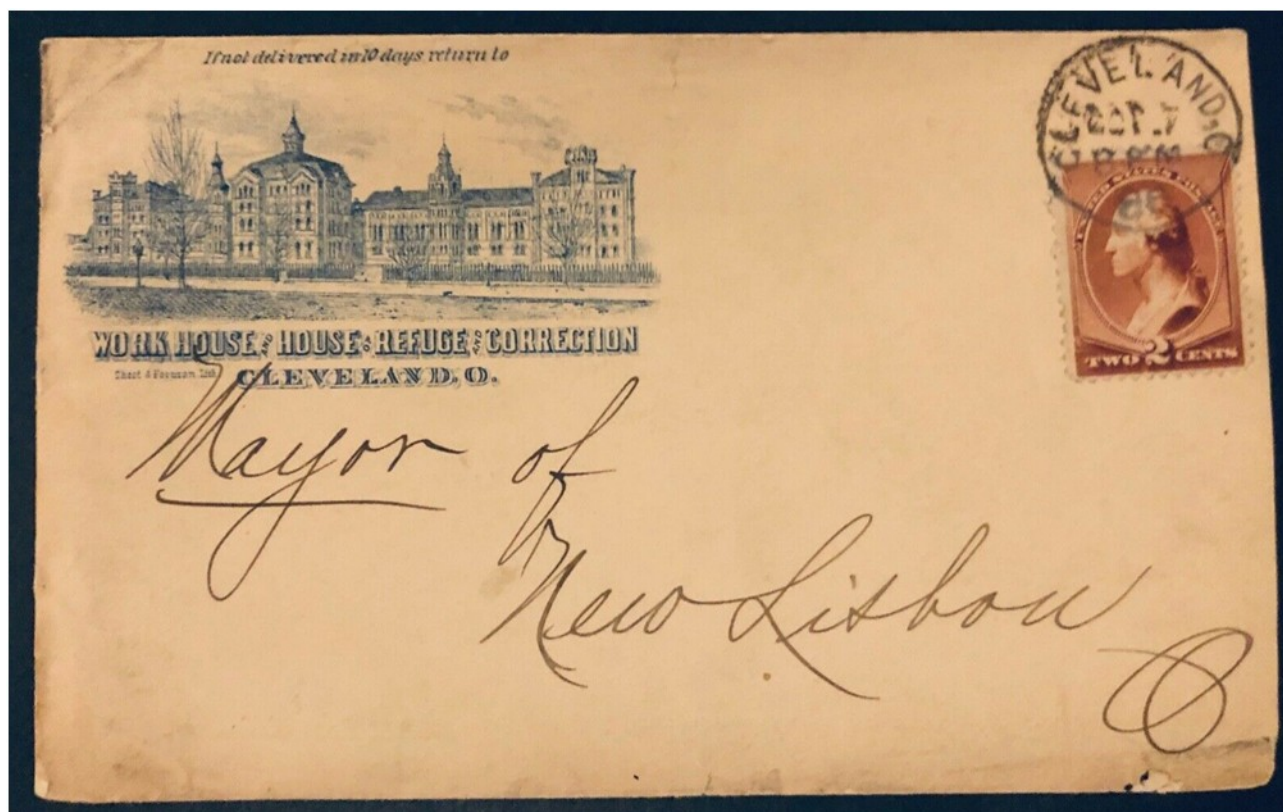 If not delivered in 10 days return to
WORK HOUSE AND HOUSE OF REFUGE AND CORRECTION
CLEVELAND, O.
CLEVELAND, O.
OCT 7
UNITED STATES POSTAGE
TWO 2 CENTS
Mayor of
New Lisbon
O